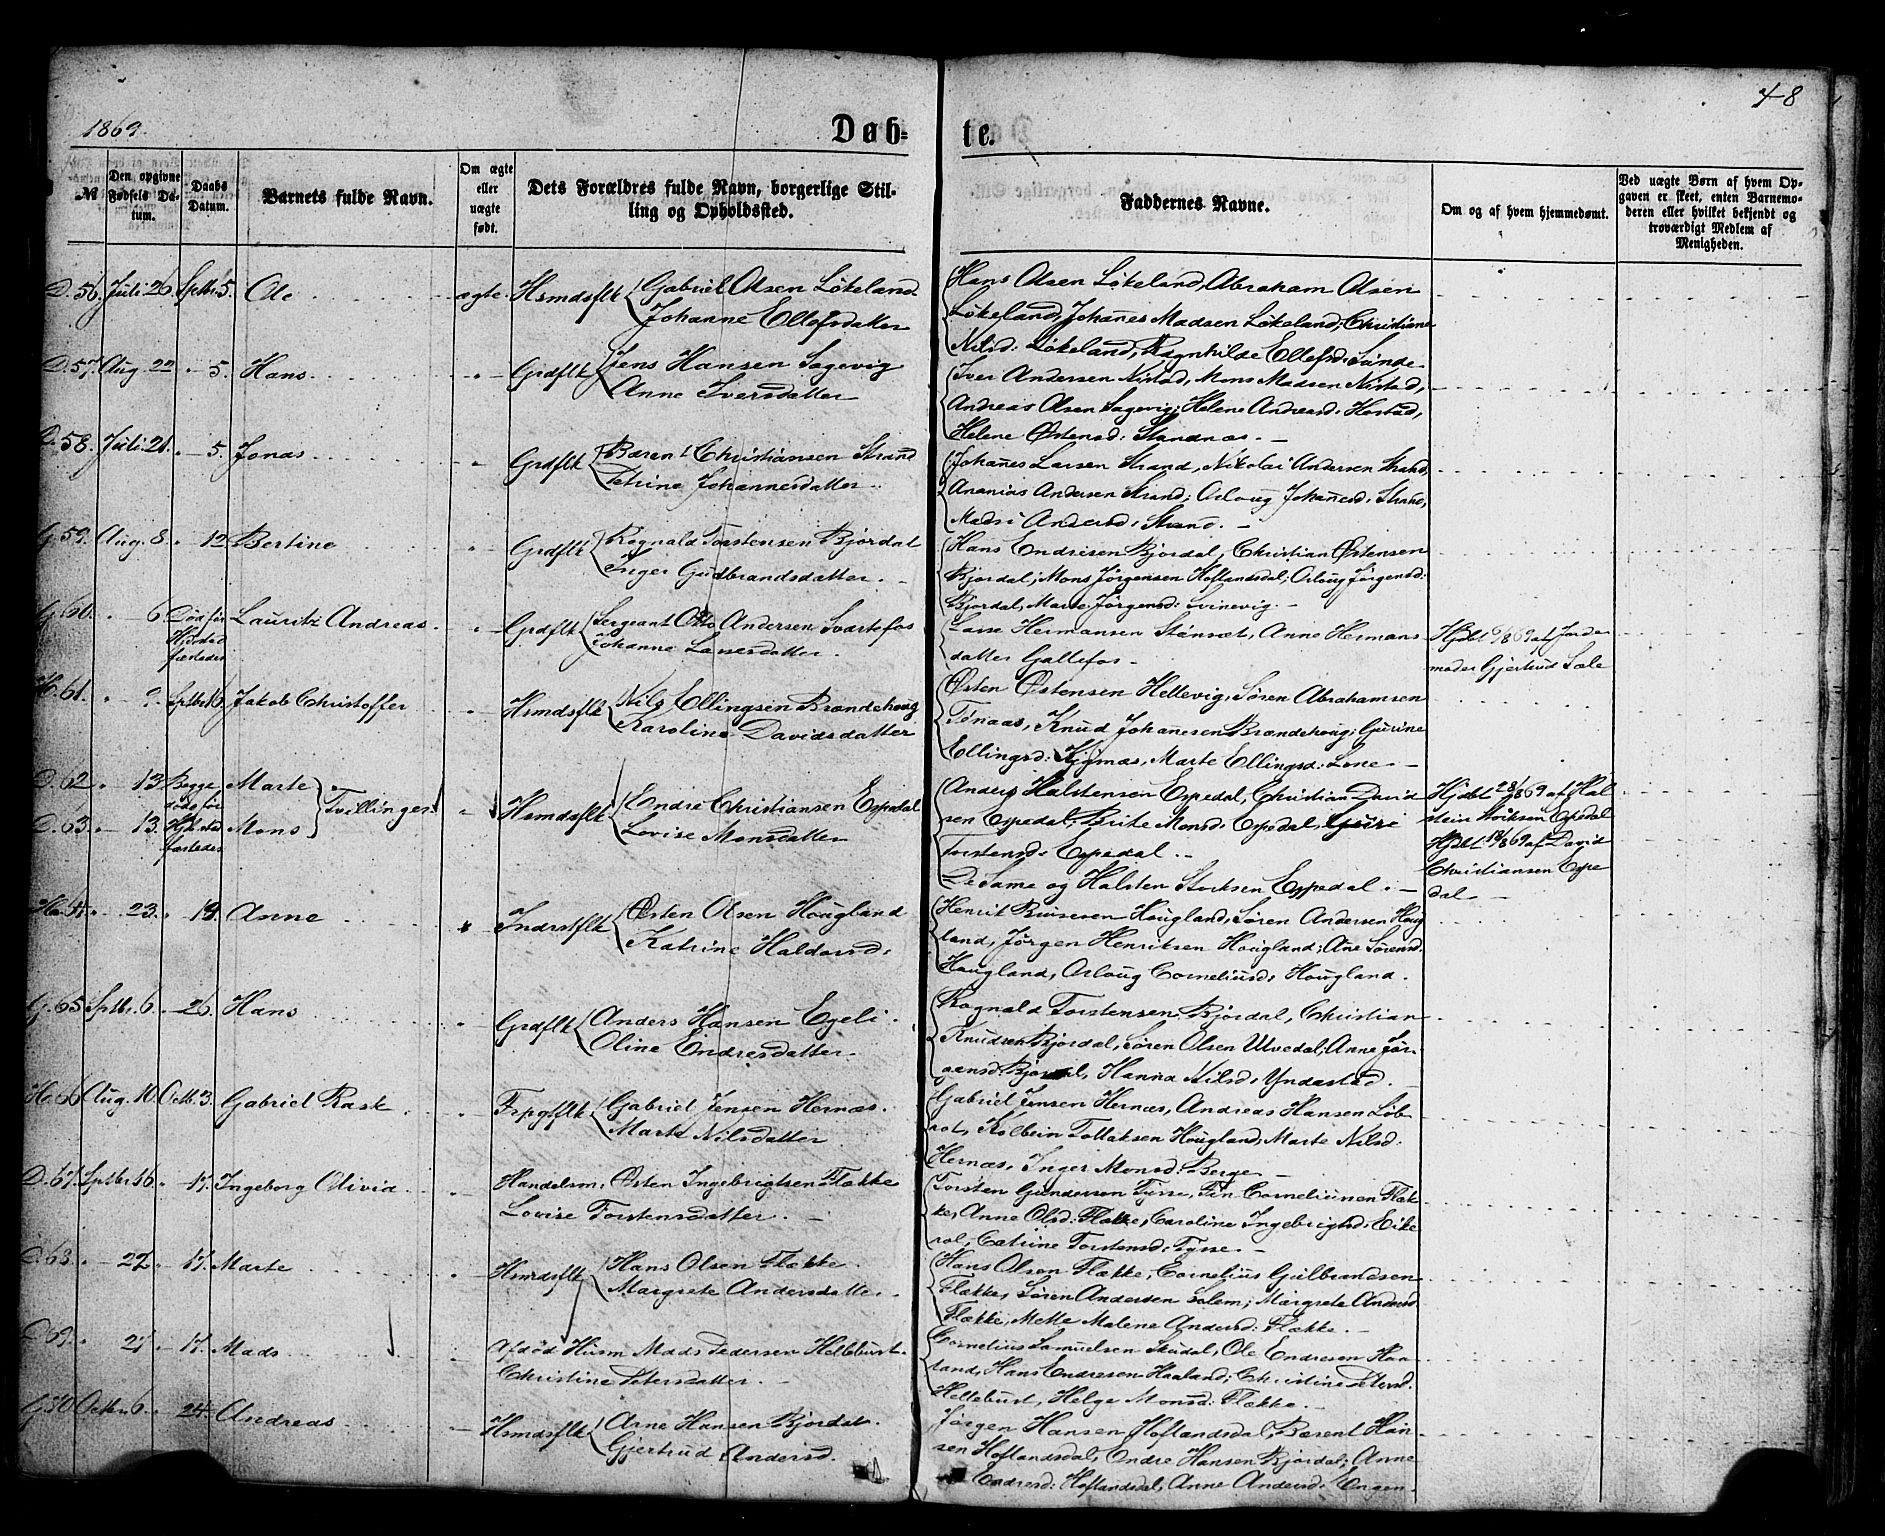 1869.
Døb-
te.
48
№
Den opgivne Fødsels Datum.
Daabs Datum.
Barnets fulde Navn.
Om ægte eller uægte født.
Dets Forældres fulde Navn, borgerlige Stilling og Opholdssted.
Faddernes Navne.
Om og af hvem hjemmedøbt.
Ved uægte Børn af hvem Opgaven er skeet, enten Barnemoderen eller hvilket bekjendt og troværdigt Medlem af Menigheden.
D. 56. Juli 26. Septbr 5. Ole ægte Hsmdsflk Gabriel Olsen Løkeland
Johanne Ellefsdatter
Hans Olsen Løkeland, Abraham Olsen
Løkeland, Johanes Madsen Løkeland; Christiane
Nilsd: Løkeland, Ragnhilde Ellefsd: Sande
D. 57. Aug. 22 " 5. Hans " Grdflk Jens Hansen Sagevig
Anne Iversdatter
Iver Andersen Nistad, Mons Madsen Nistad,
Andreas Olsen Sagevig; Helene Andersd: Hastad,
Helene Østensd: Standnæs. -
D. 58. Juli 21. " 5. Jonas " Grdflk Bærent Christiansen Strand
Petrine Johannesdatter
Johanes Larsen Strand, Nikolai Andersen Strand,
Ananias Andersen Strand; Arloug Johanesd: Strand,
Madsi Andersd: Strand. -
G. 59. Aug. 8. " 12 Bertine " Grdflk Rognald Torstensen Bjordal
Inger Gudbrandsdatter. -
Hans Endresen Bjordal, Christian Østensen
Bjordal; Mons Jørgensen Hoflandsdal; Arloug Jørgensd:
Bjordal, Marte Jørgensd: Svinevig. -
G. 60. " 6 Død før Lauritz Andreas. " Grdflk Sergeant Otto Andersen Svartefos
Johanne Larsdatter.
Lasse Hermansen Stønsæt, Anne Hermans
datter Gallefos -
Hjdbt 6/8 69 af Jorde
moder Gjertrud Sole
H. 61. " 9. Septbr Jakob Christoffer " Hsmdsflk Nils Ellingsen Brændehoug
Karoline Davidsdatter
Østen Østensen Hellevig, Søren Abrahamsen
Tønaas, Knud Johanesen Brændehoug; Gurine
Ellingsd: Kjønnæs, Marte Ellingsd: Lone -
D. 62 " 13 Begge Marte
D. 63. " 13. døde før Mons Tvillinger " Hsmdsflk Endre Christiansen Espedal
Lovise Monsdatter
Anders Halstensen Espedal, Christian David
sen Espedal; Brite Monsd: Espedal, Guri
Torstensd: Espedal. -
De Same og Halsten Espedal. -
Hjdbt 28/8 69 af Hal
stein Espedal
Hjdbt 18/8 69 af David
Christiansen Espe
dal -
H. 64. " 23. " 19. Anne " Indrstflk Østen Olsen Hougland
Katrine Haldorsd:
Henrik Hougland, Søren Andersen Houg
land, Jørgen Henriksen Hougland; Ane Sørensd:
Hougland, Arloug Corneliusd: Hougland.
G. 65 Septbr. 6. " 26. Hans " Grdflk Anders Hansen Egeli.
Oline Endresdatter
Rognald Torstensen Bjordal, Christian
Knudsen Bjordal, Søren Olsen Ulvedal; Anne Jør-
gensd: Bjordal, Hanna Nilsd: Yndestad. -
H. 66 Aug. 10. Octb. 3. Gabriel Rask " Gabriel Jensen Hernæs.
Marte Nilsdatter
Gabriel Jensen Hernæs, Andreas Hansen Løb
rot, Kolbein Hougland, Marte Nilsd:
Hernæs, Inger Monsd: Berge -
D. 67. Septbr 16 " 17. Ingeborg Olivia " Handelsm: Østen Ingebrigtsen Flække
Lovise Torstensdatter. -
Torsten Gundersen Tysse, Fin Corneliussen Flæk-
ke, Anne Olsd: Flække, Caroline Ingebrigtsd: Eike
rol, Catrine Torstensd: Tysse. -
D. 68. " 27. " 17. Marte " Hsmdsflk Hans Olsen Flække.
Margrete Andersdatter.
Hans Olsen Flække, Cornelius Gulbrandsen
Flække, Søren Andersen Solem; Margrete Andersd:
Flække, Mette Malene Andersd: Flække. -
D. 69. " 27 " 17. Mads " Afdød Husm Mads Pedersen Hellebust.
Christine Petersdatter. -
Cornelius Samuelsen Skudal, Ole Endresen Haa
land, Hans Endresen Haaland; Christine Petersd:
Hellebust, Helge Monsd: Flække. -
G. 70 Octbr. 6. " 24. Andreas " Hsmdsflk Arne Hansen Bjordal.
Gjertrud Andersd.
Jørgen Hansen Hoflandsdal, Bærent Han-
sen Hoflandsdal, Endre Hansen Bjordal; Anne
Endresd: Hoflandsdal, Anne Andersd: Engen-